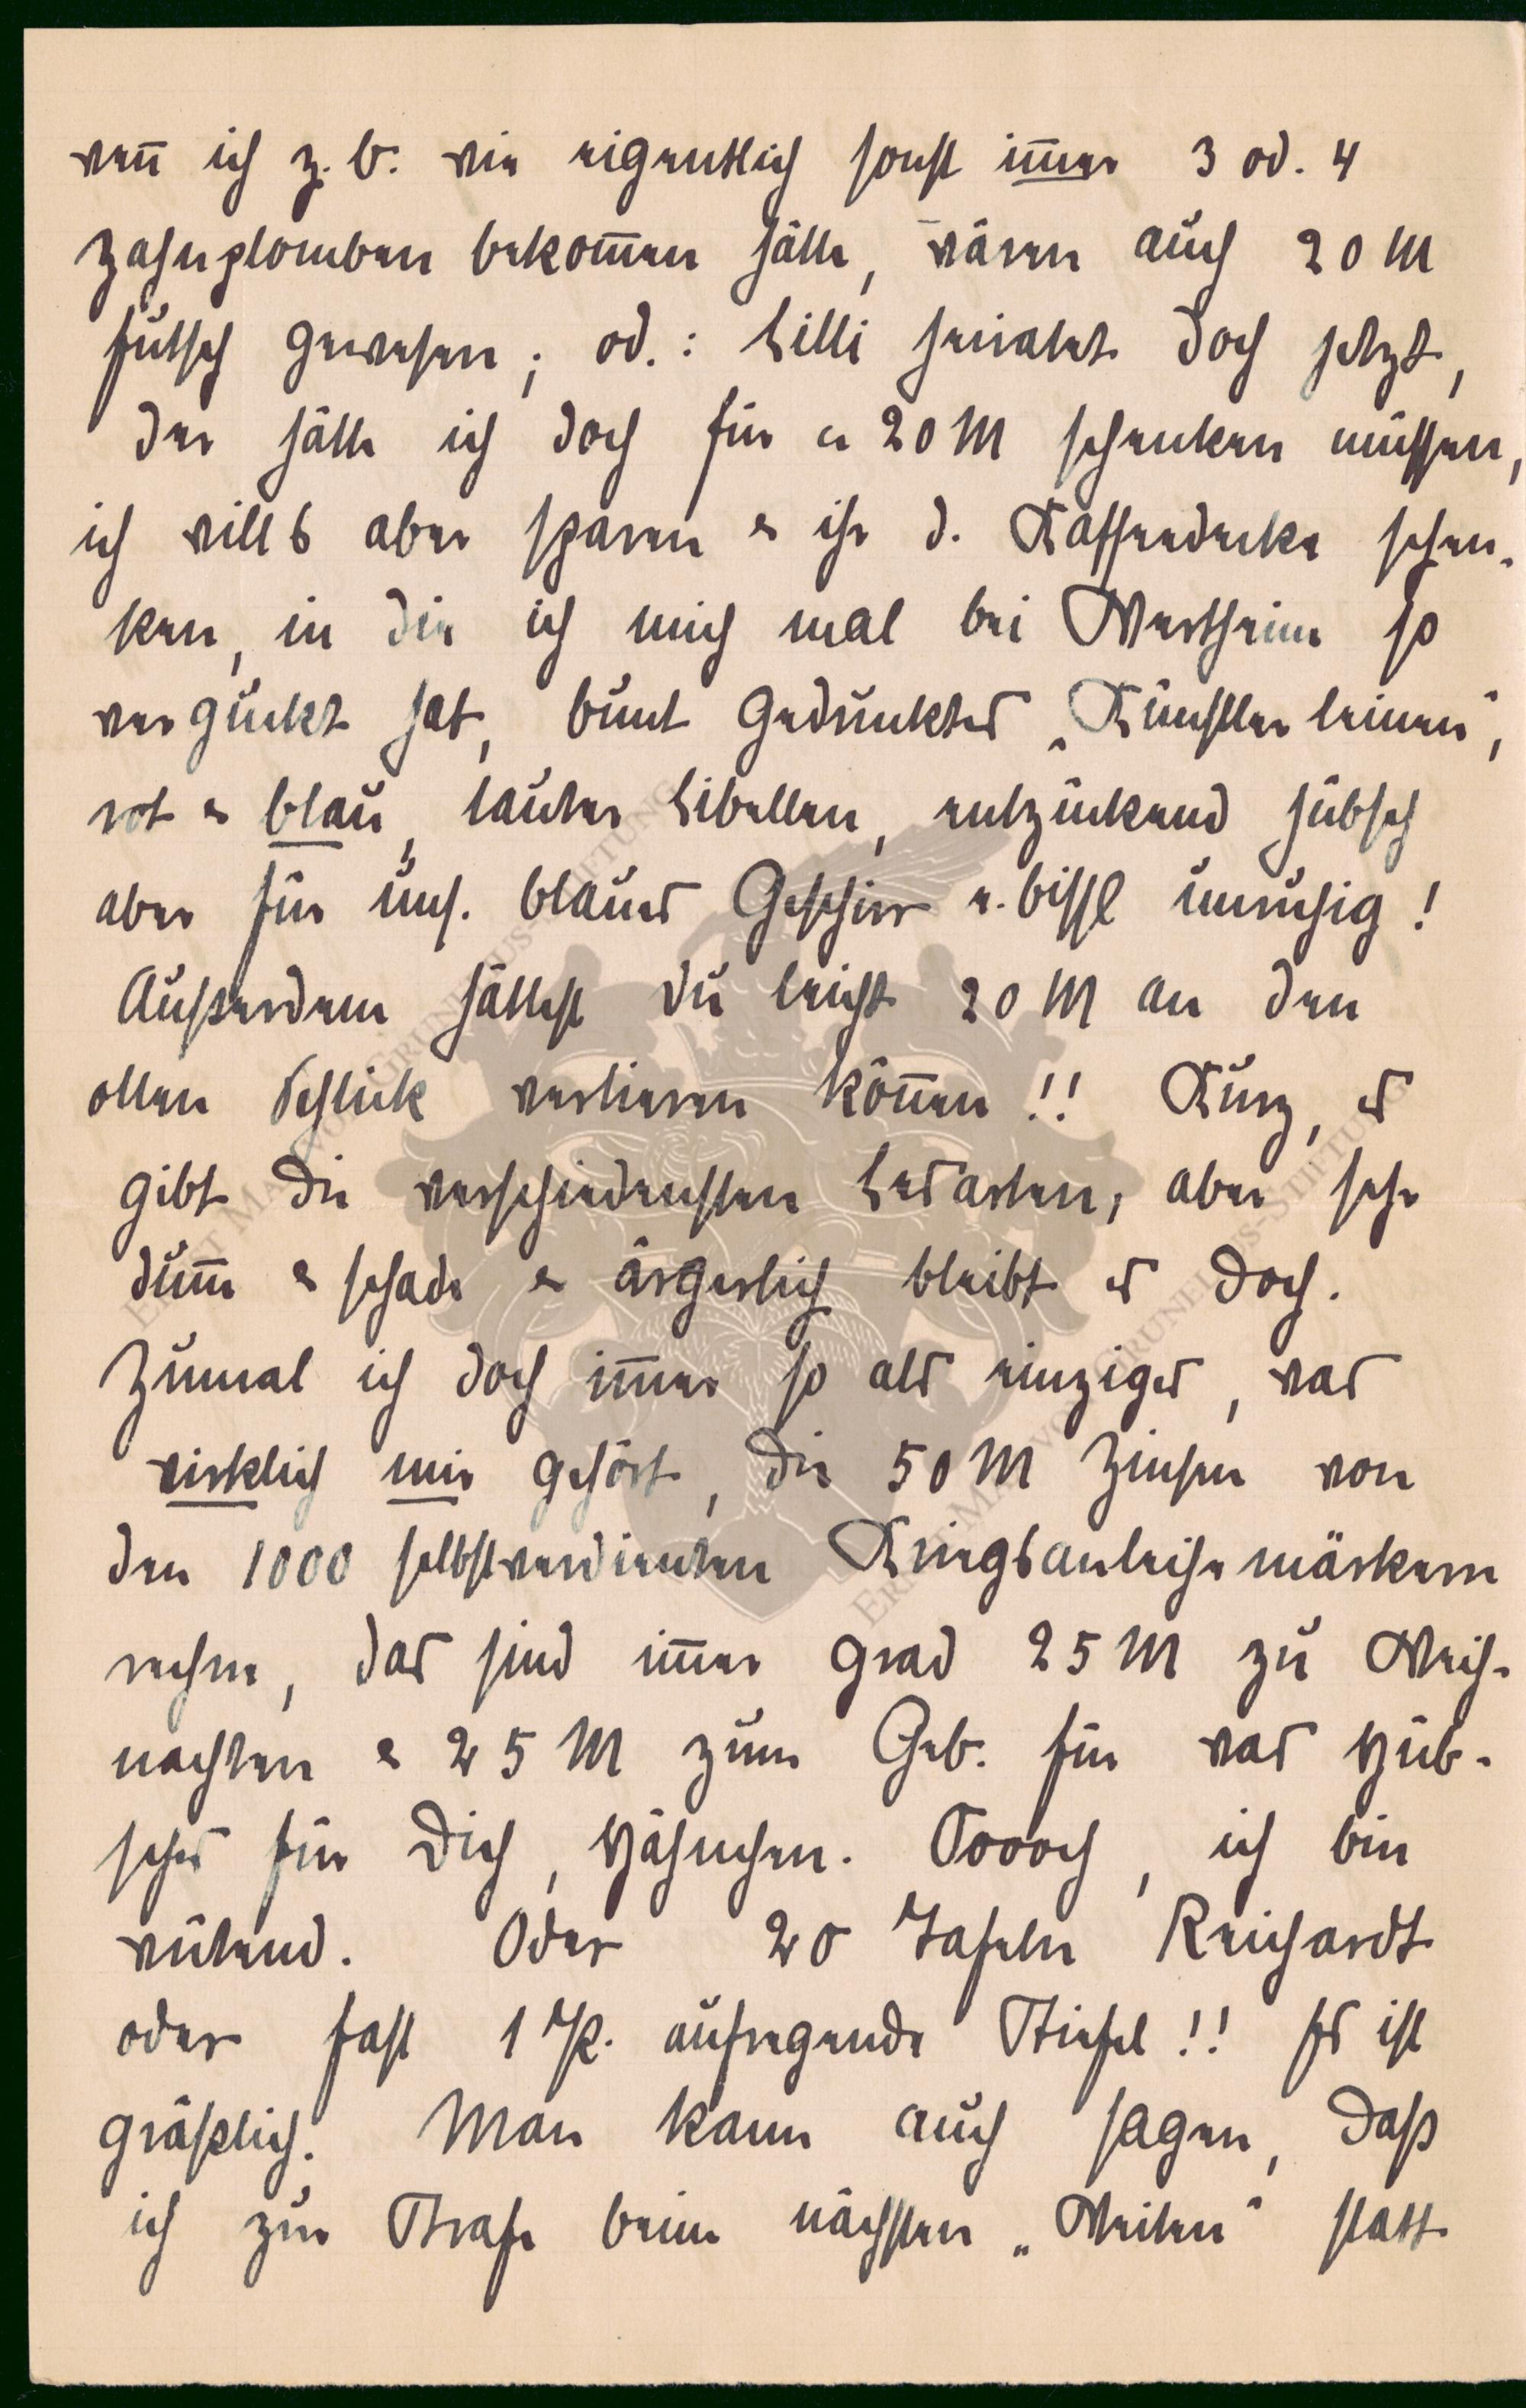 wen̄ ich z. b. wie eigentlich sonst im̄er 3 od. 4
Zahnplomben bekom̄en hätte, wären auch 20 M
futsch gewesen; od.: Lilli heiratet doch jetzt,
der hätte ich doch für ca 20 M schenken müssen,
ich will's aber sparen & ihr d. Kaffeedecke schen-
ken, in die ich mich mal bei Wertheim so
verguckt hat, bunt gedrucktes „Künstlerleinen",
rot & blau, lauter Libellen, entzückend hübsch
aber für uns. blaues Geschirr e. bissl unruhig!
Außerdem hättest du leicht 20 M an den
ollen Schlick verlieren kön̄en!! Kurz, es
gibt die verschiedensten Lesarten, aber sehr
dum̄ & schade & ärgerlich bleibt es doch.
Zumal ich doch im̄er so als einziges, was
wirklich mir gehört, die 50 M Zinsen von
den 1000 selbstverdienten Kriegsanleihemärkern
rechne, das sind im̄er grad 25 M zu Weih-
nachten & 25 M zum Geb. für was Hüb-
sches für Dich, Hähnchen. Toooch, ich bin
wütend. Oder 20 Tafeln Reichardt
oder fast 1 P. aufregende Stiefel!! Es ist
gräßlich. Man kann auch sagen, daß
ich zur Strafe beim nächsten „Weiten" statt